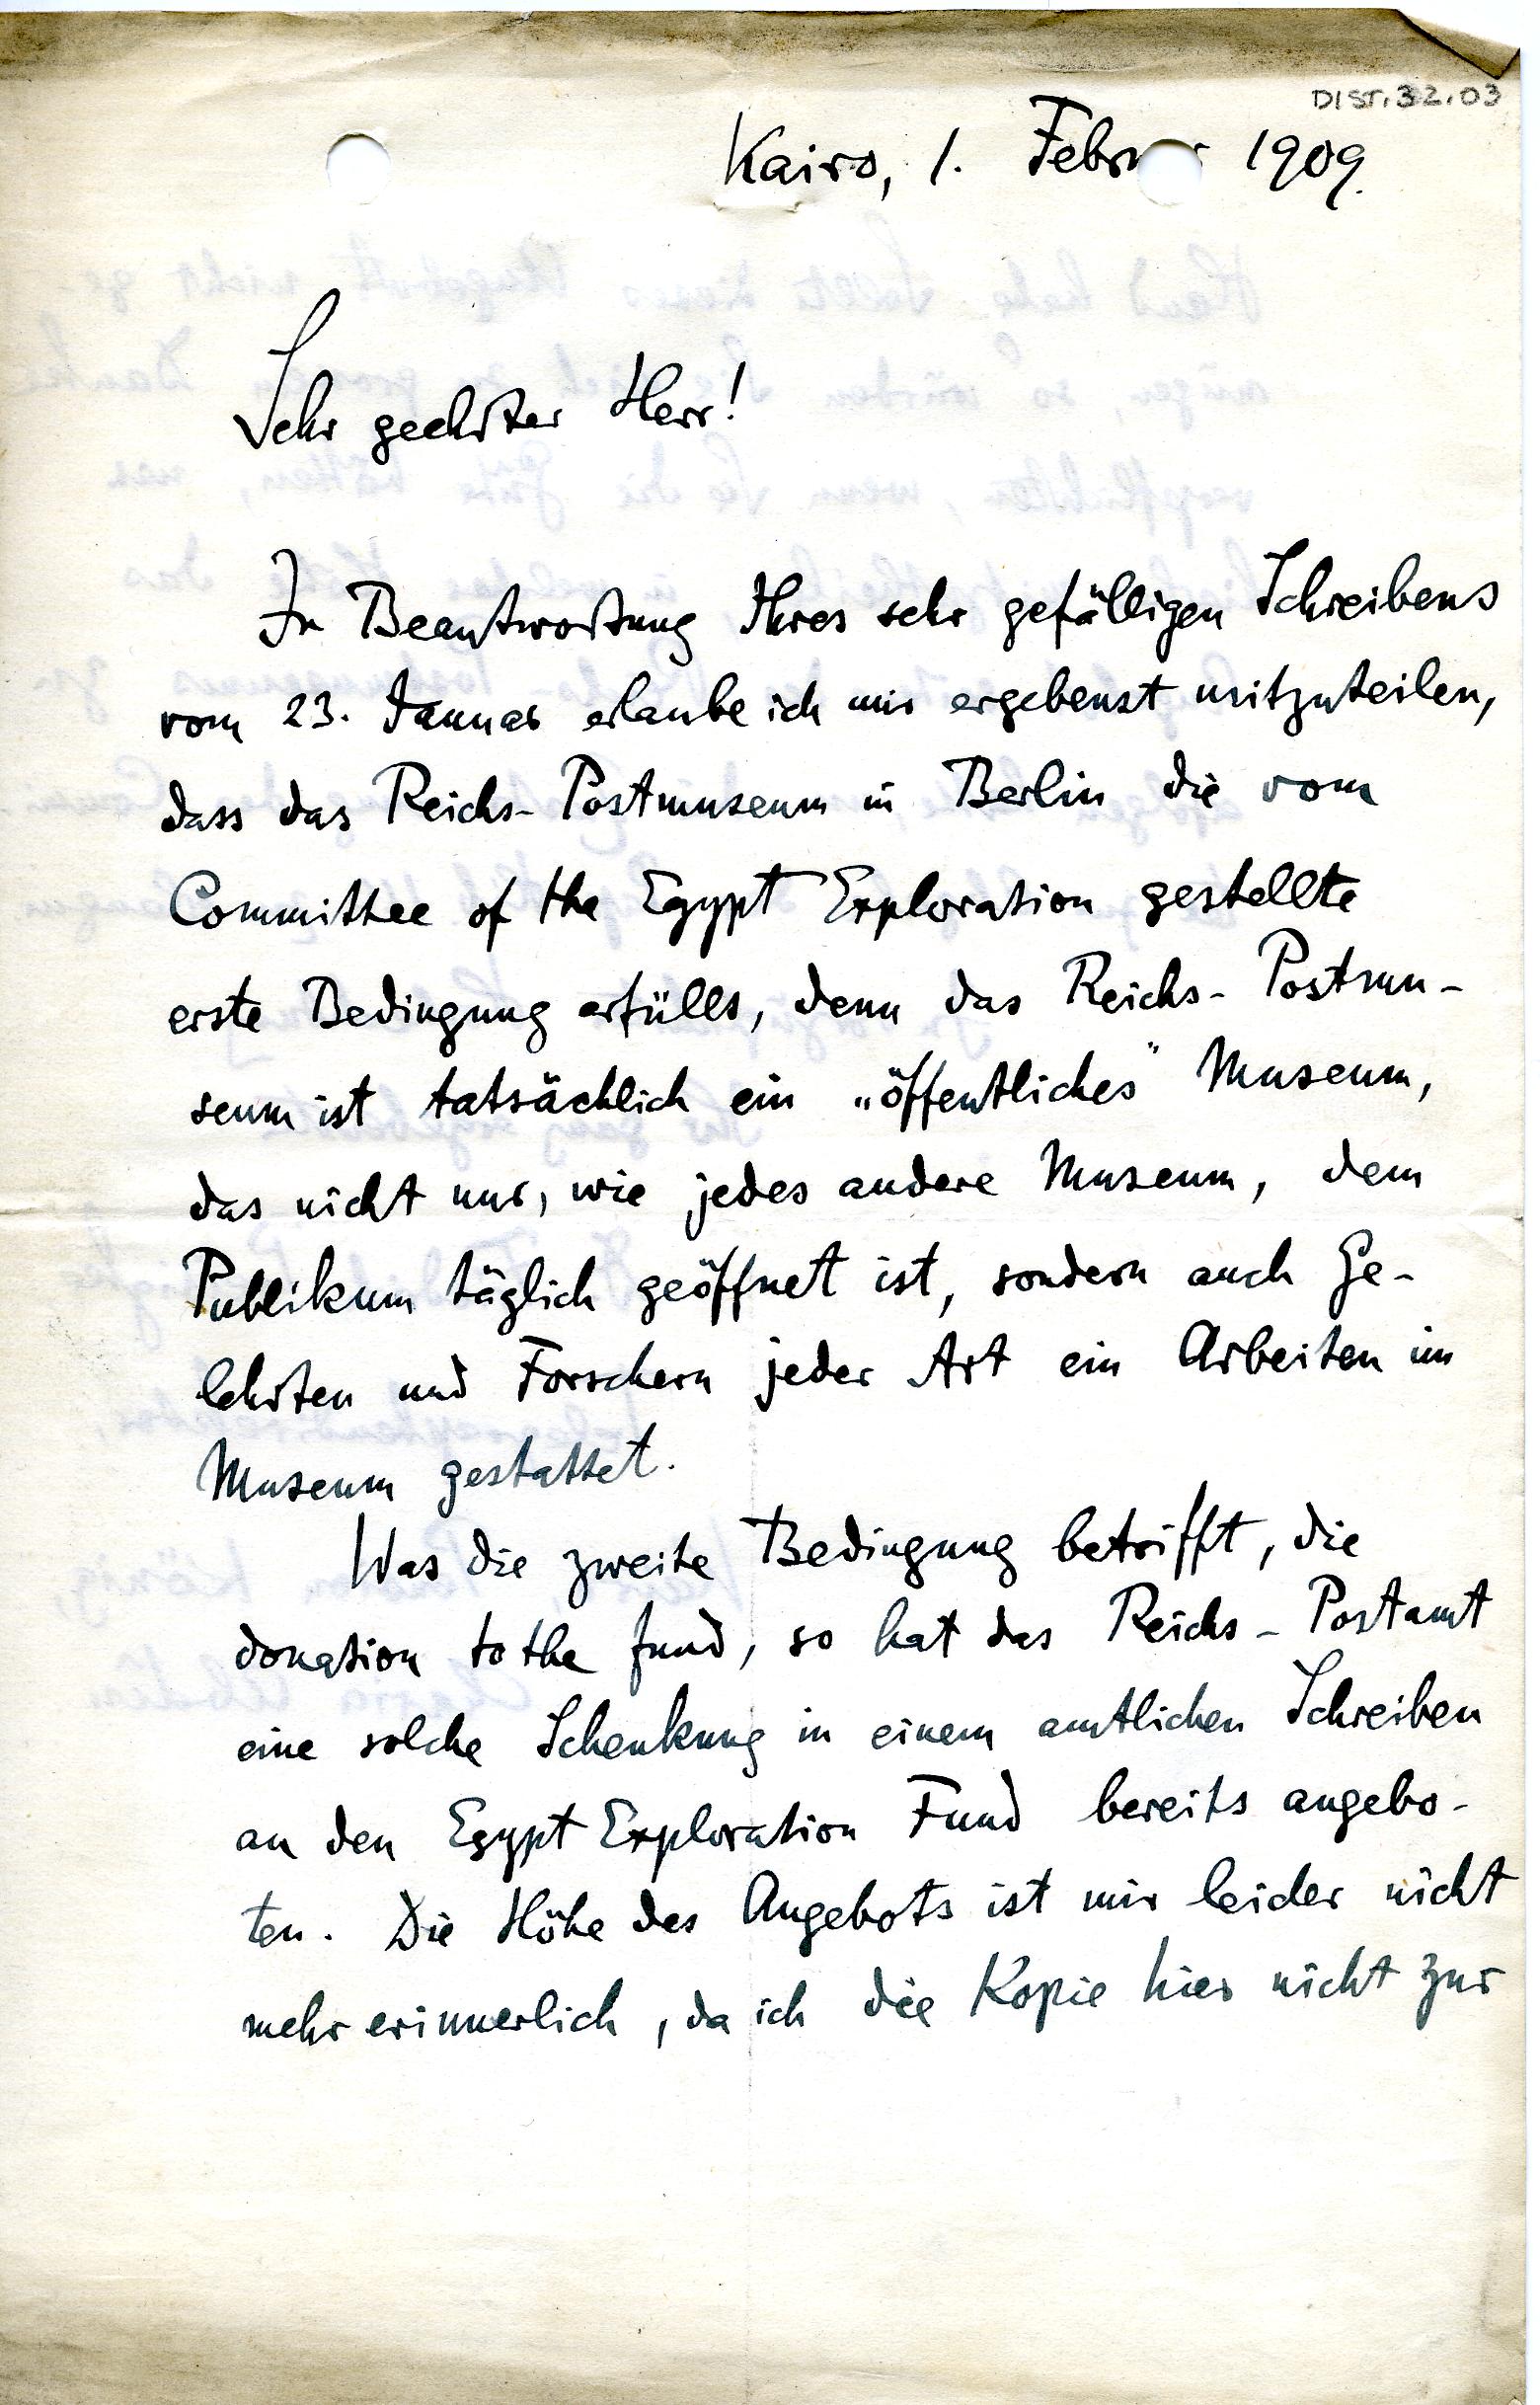 DIST.32.03
Kairo, 1. Februar 1909.
Sehr geehrter Herr!
In Beantwortung Ihres sehr gefälligen Schreibens
vom 23. Januar erlaube ich mir ergebenst mitzuteilen,
dass das Reichs-Postmuseum in Berlin die vom
Committee of the Egypt Exploration gestellte
erste Bedingung erfüllt, denn das Reichs-Postmu-
seum ist tatsächlich ein „öffentliches" Museum,
das nicht nur, wie jedes andere Museum, dem
Publikum täglich geöffnet ist, sondern auch Ge-
lehrten und Forschern jeder Art ein Arbeiten im
Museum gestattet.
Was die zweite Bedingung betrifft, die
donation to the fund, so hat das Reichs-Postamt
eine solche Schenkung in einem amtlichen Schreiben
an den Egypt Exploration Fund bereits angebo-
ten. Die Höhe des Angebots ist mir leider nicht
mehr erinnerlich, da ich die Kopie hier nicht zur